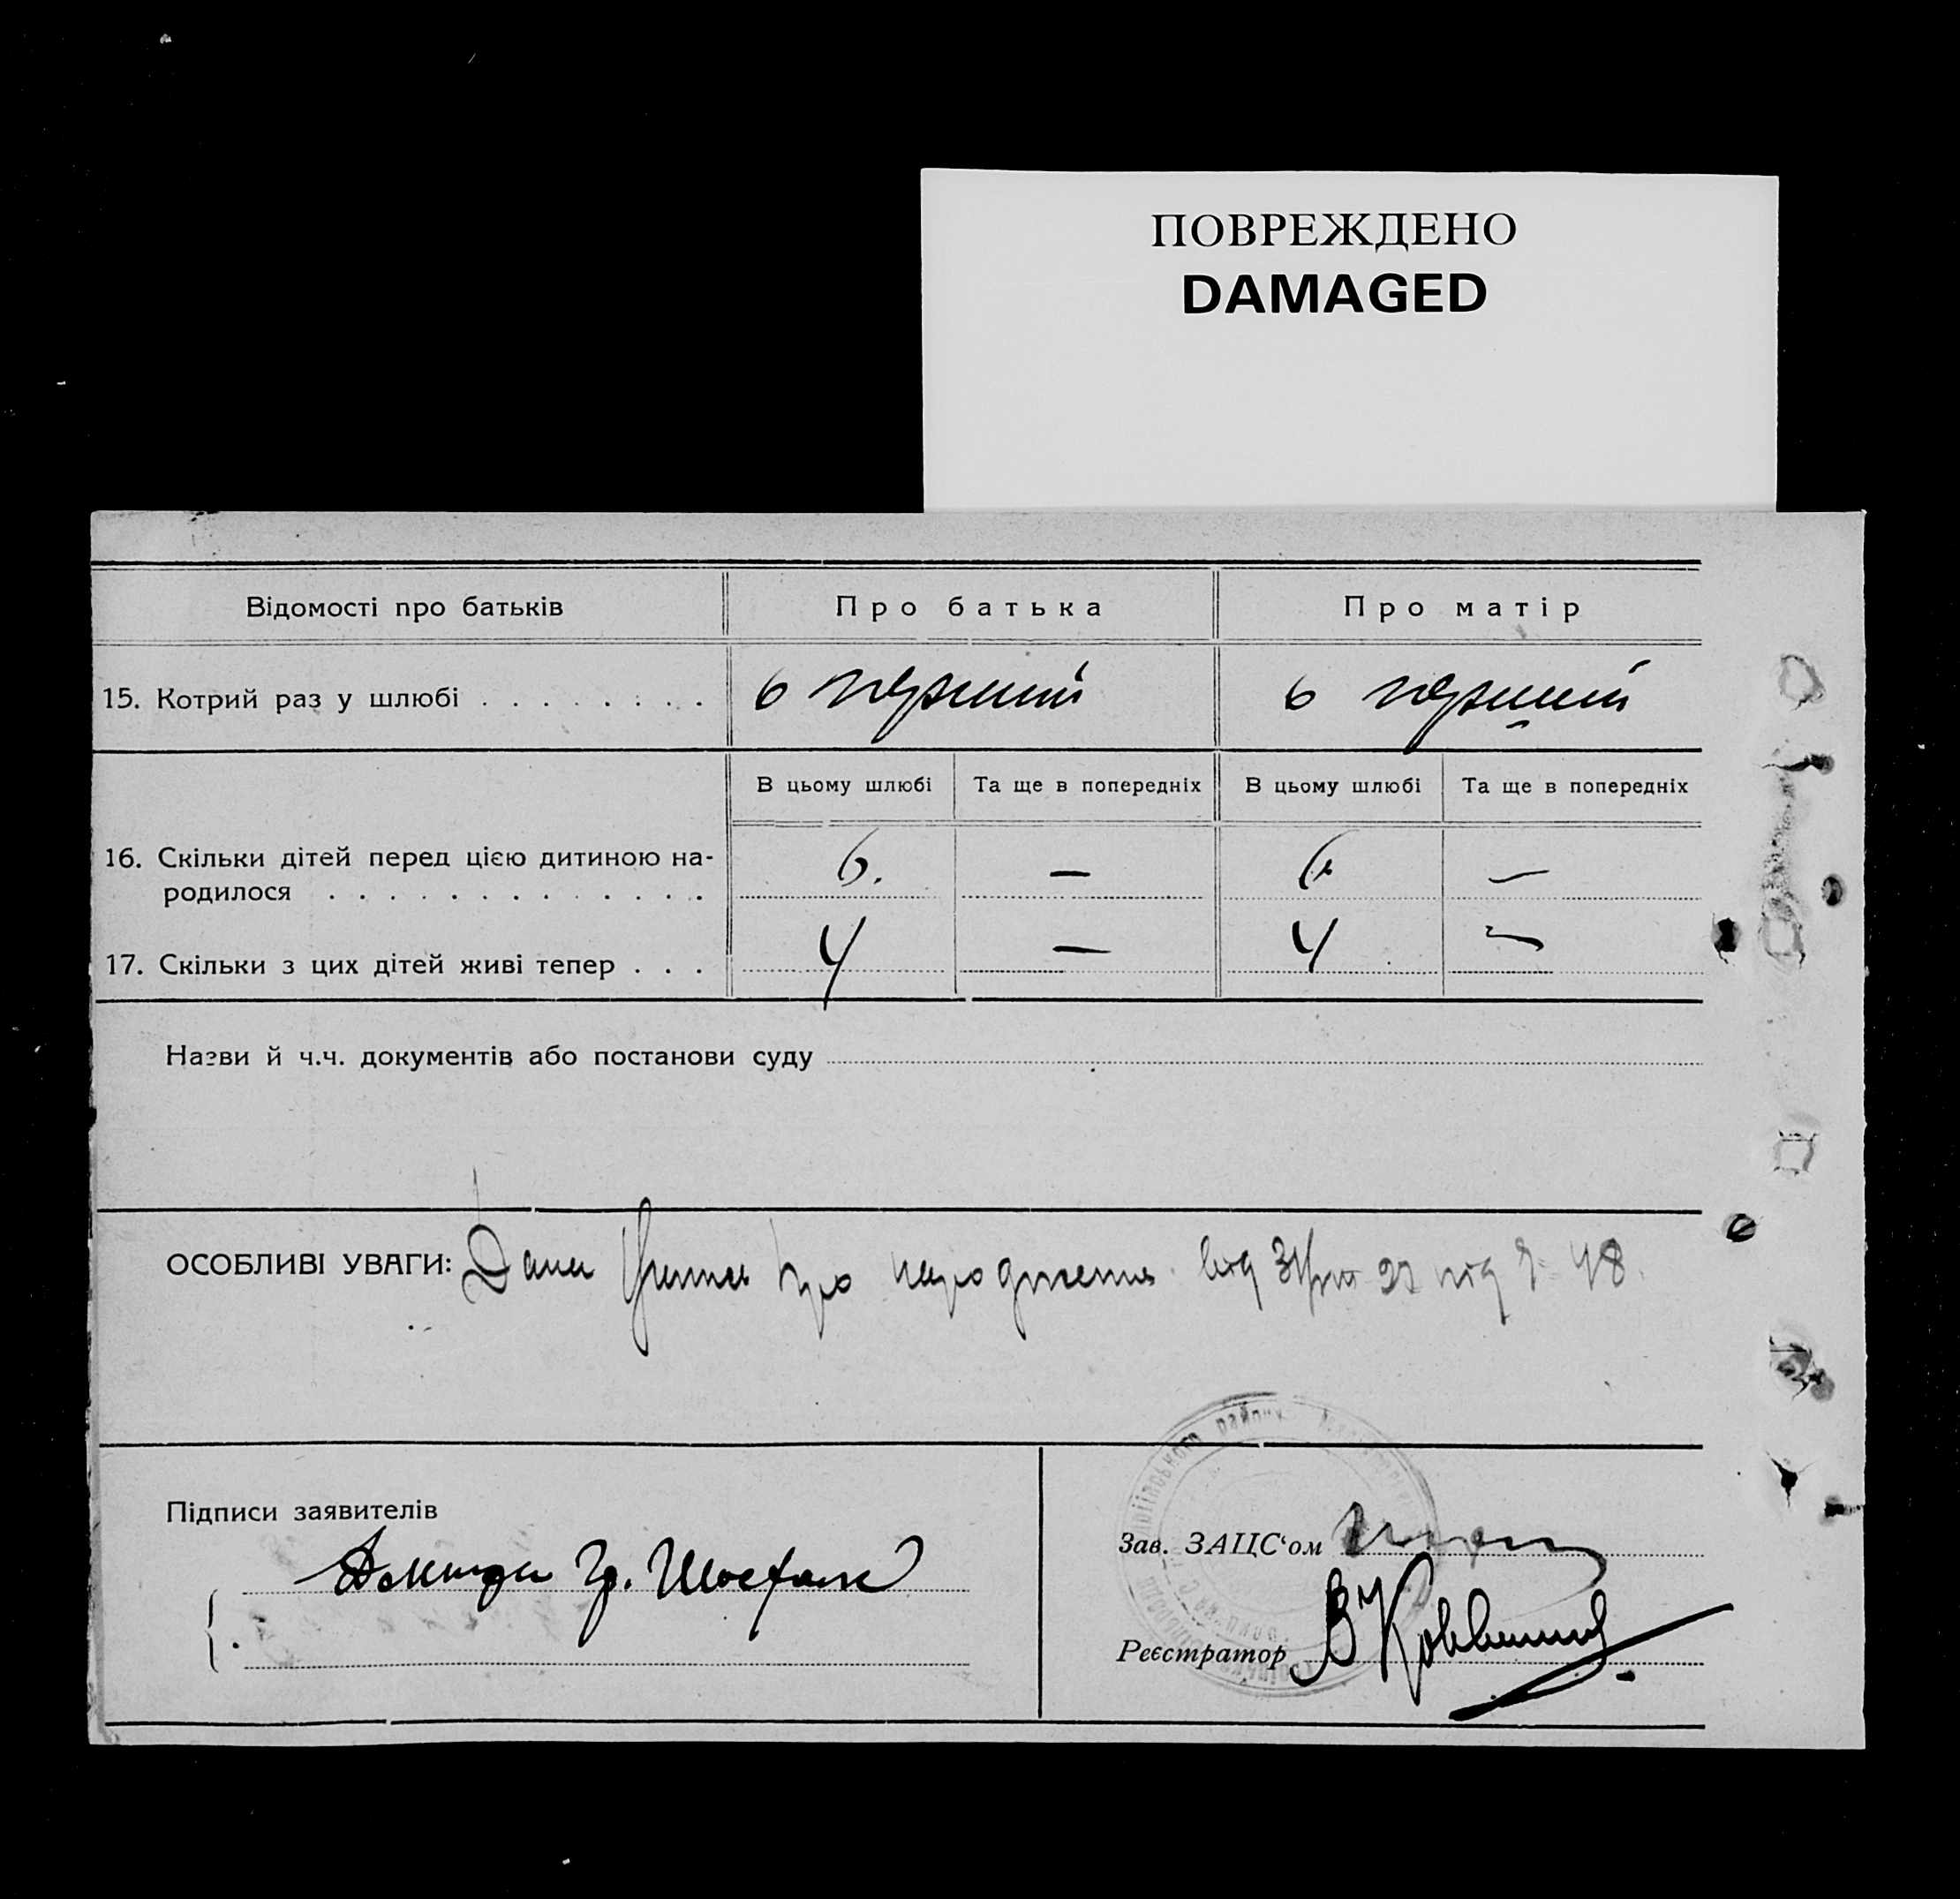 ПОВРЕЖДЕНО
DAMAGED
Відомості про батьків Про батька Про матір
15. Котрий раз у шлюбі . . . . . . . . в перший в перший
В цьому шлюбі Та ще в попередніх В цьому шлюбі Та ще в попередніх
16. Скільки дітей перед цією дитиною на-
родилося . . . . . . . . . . . . . 6. — 6. —
17. Скільки з цих дітей живі тепер . . . 4 — 4 —
Назви й ч.ч. документів або постанови суду
ОСОБЛИВІ УВАГИ: Дана про народження від 48.
району
Підписи заявителів
Гр.
Зав. ЗАЦС‘ом
Реєстратор В